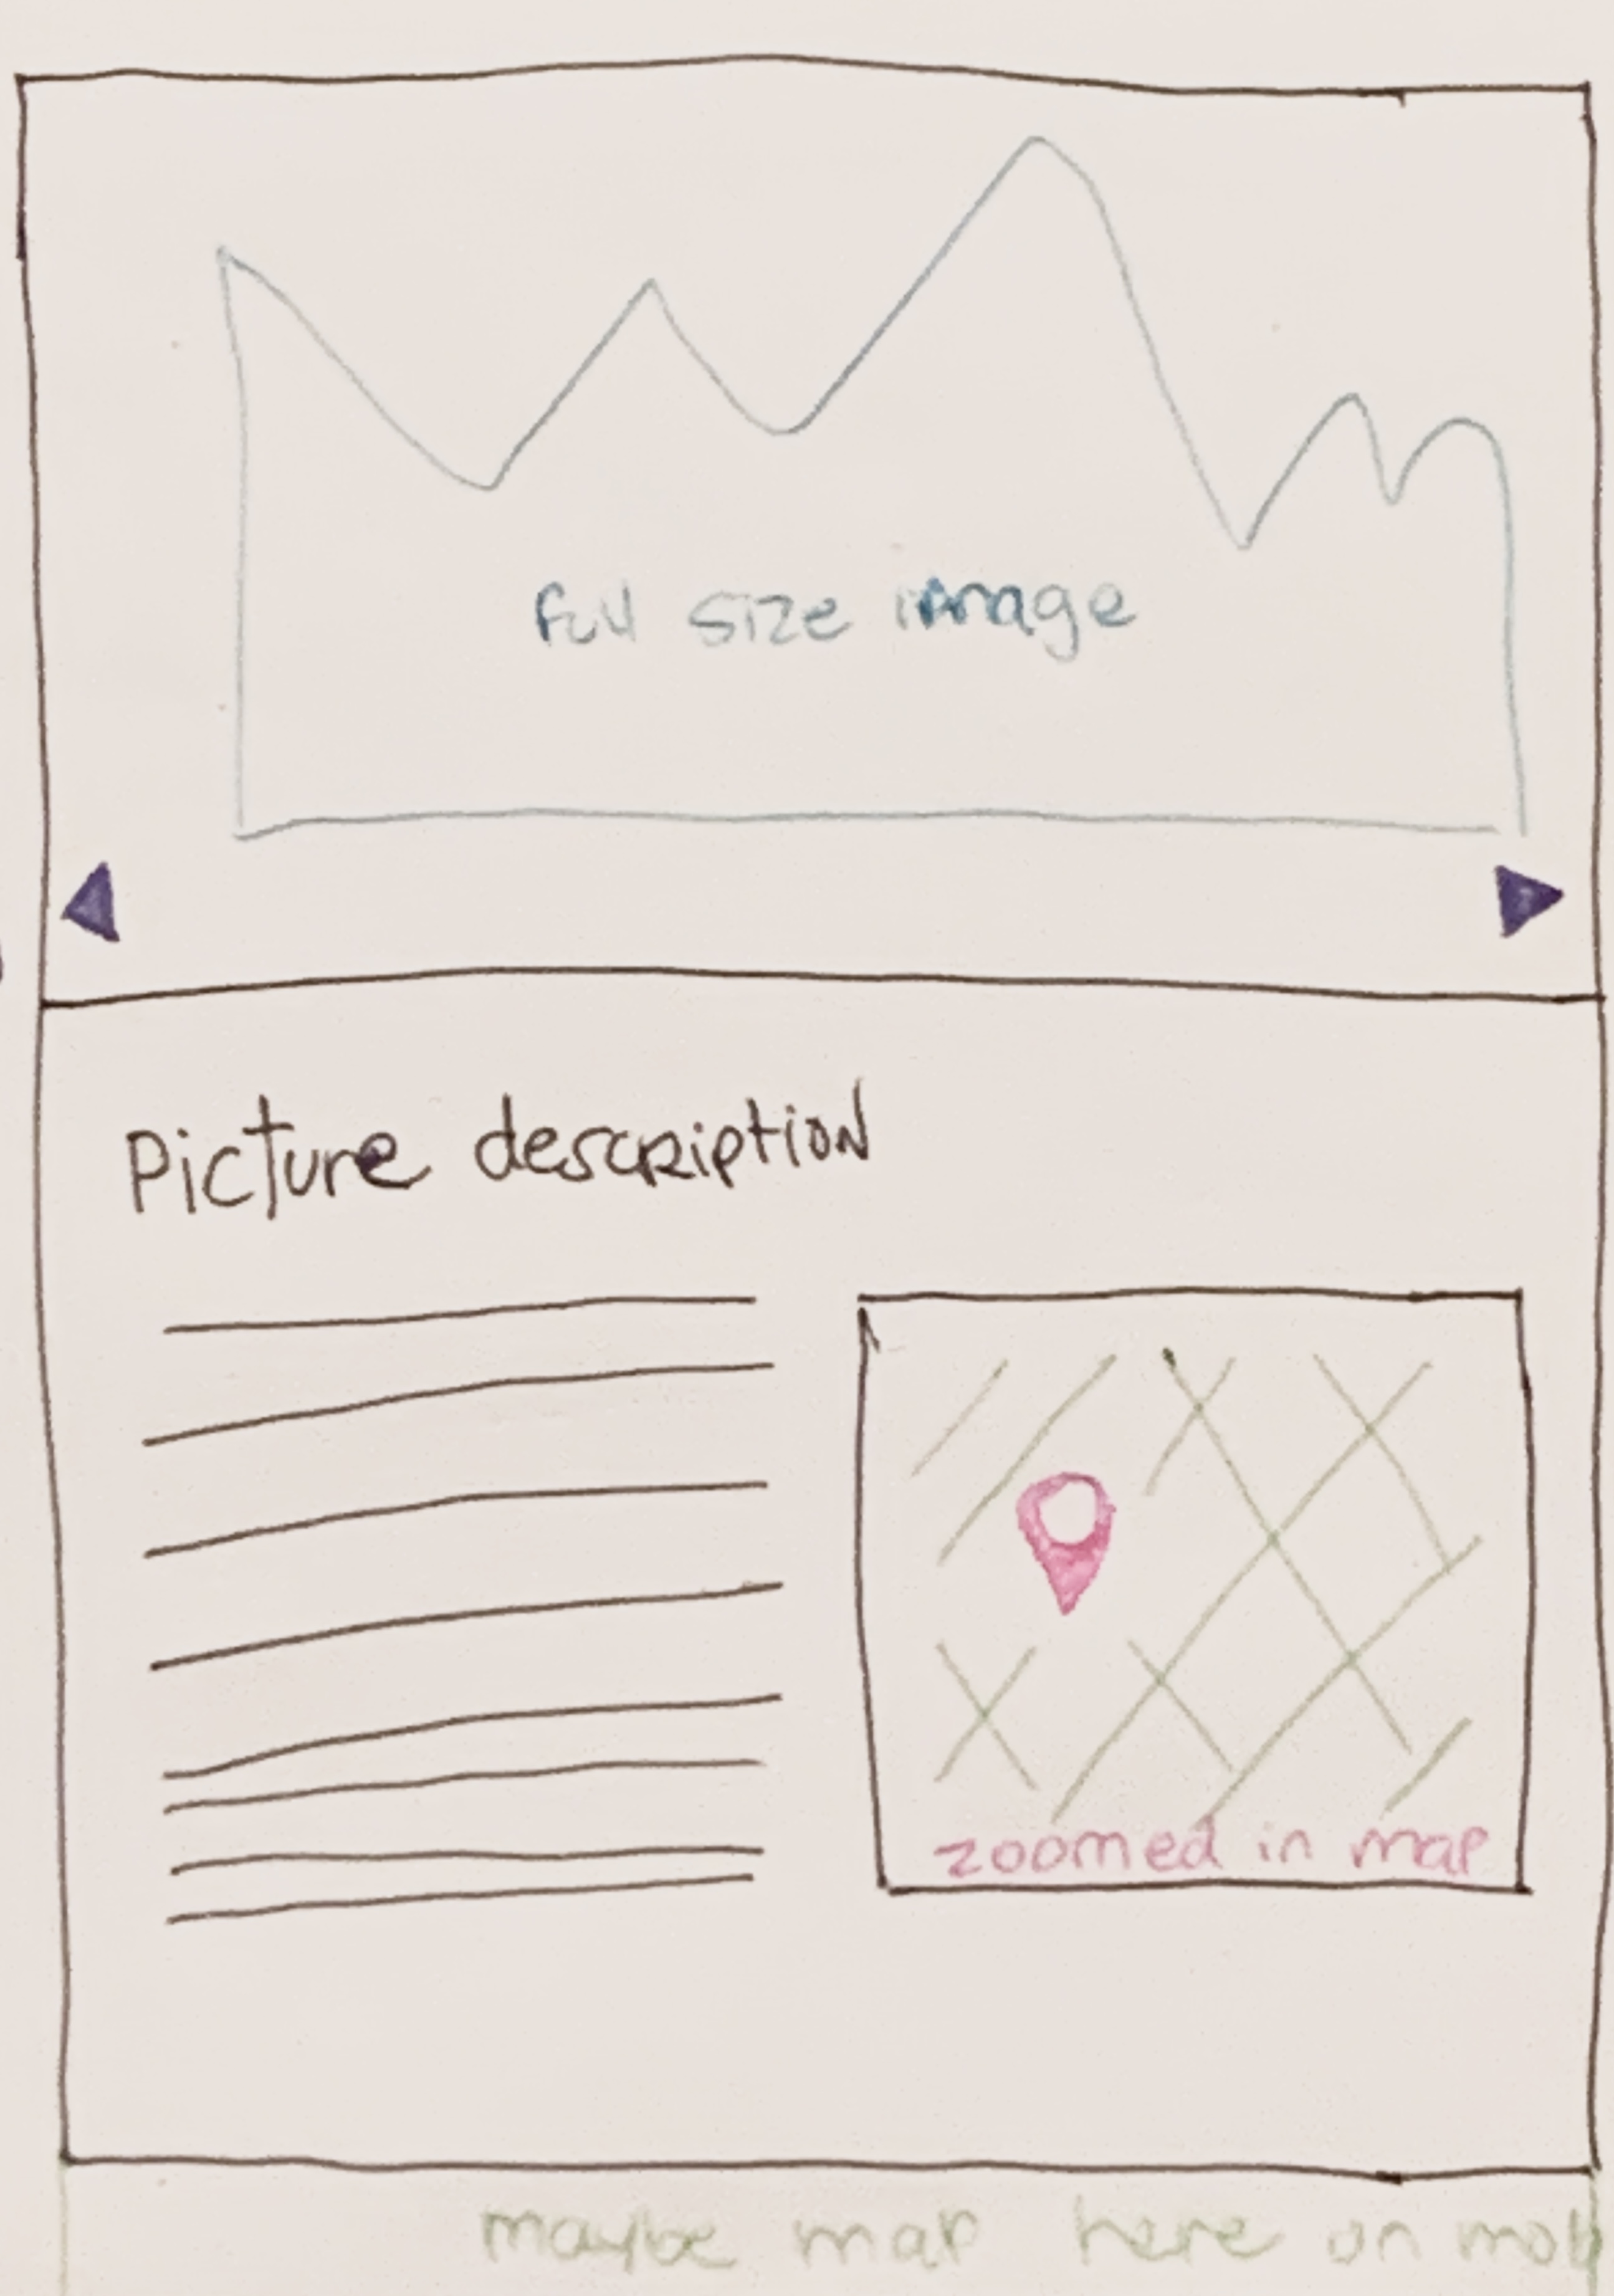 full size image
Picture description
zoomed in map
maybe map here on mob